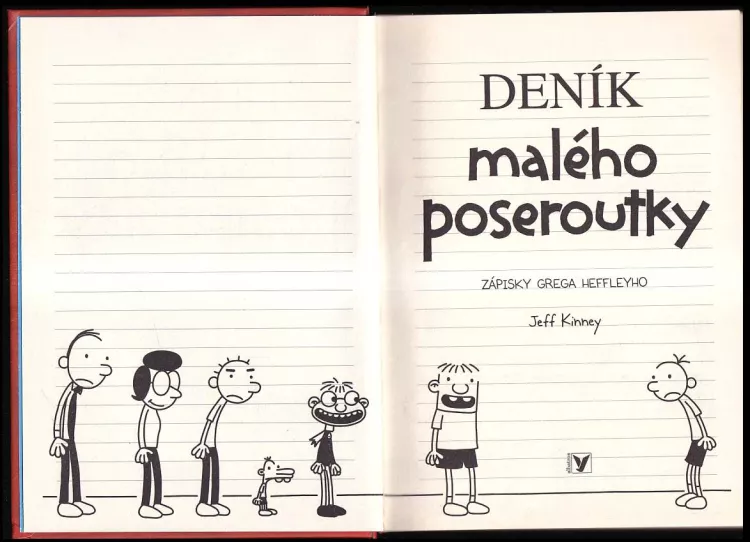 DENÍK
malého
poseroutky
ZÁPISKY GREGA HEFFLEYHO
Jeff Kinney
albatros